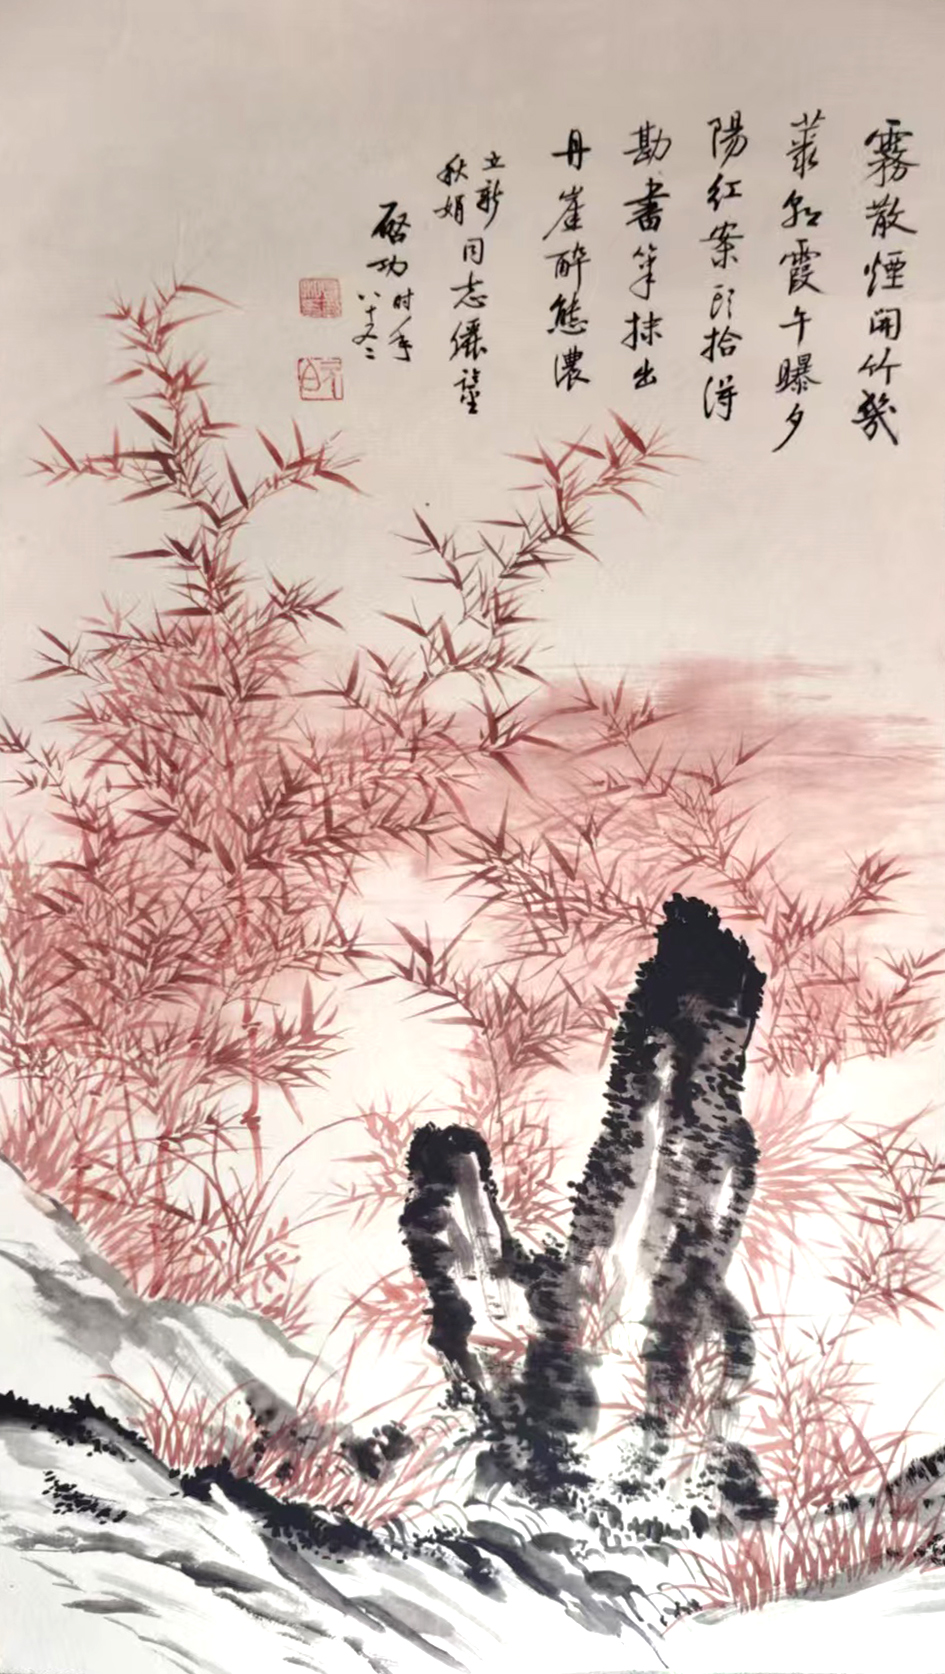 霧散煙開竹幾
叢朝霞午曝夕
陽紅案頭拾得
勘書筆抹出
丹崖醉態濃
立新
秋娟
同志儷鑒
啓功時年
八十又二
元白